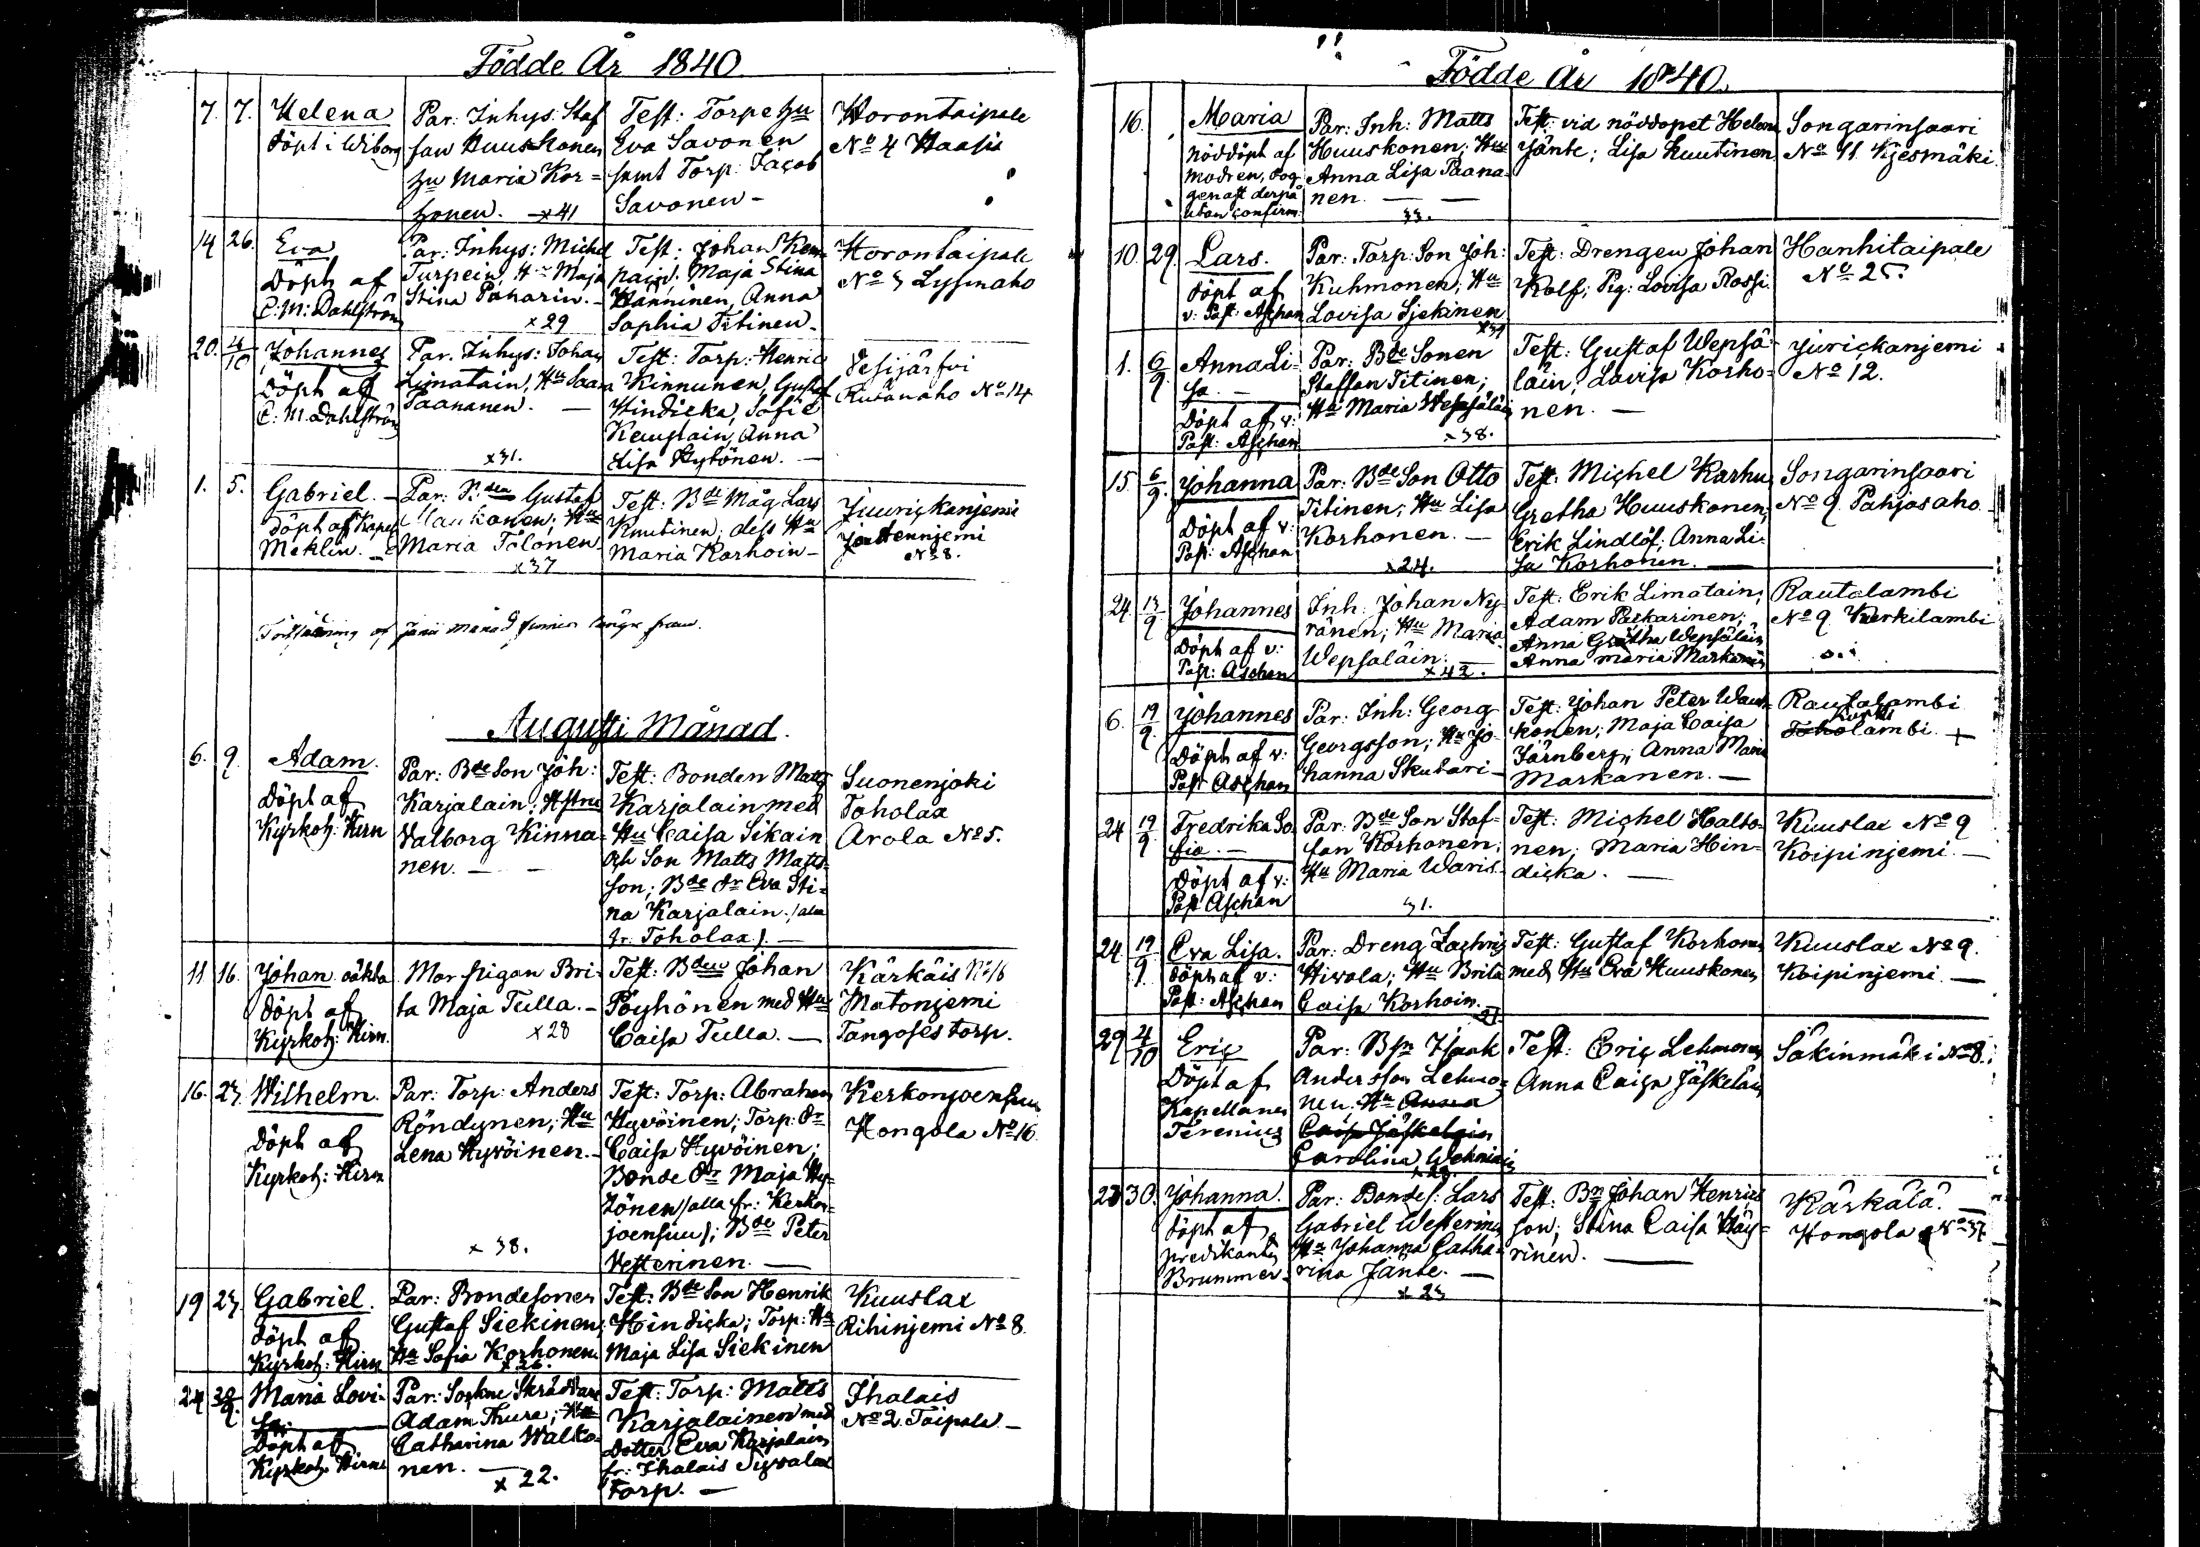 Födde År 1840
7. 7. Helena
Döpt i Wiborg
Par: Inhys: Staf
fan Huuskonen
Hu Maria Kor=
honen. x 41
Test: Torpe Hu
Eva Savonen
samt Torp: Jacob
Savonen -
Horontaipale
No 4 Haasis
14 26. Eva
Döpt af
C: M: Dahlström
Par: Inhys: Michel
Turpein, Hu Maja
Stina Paharin. -
x 29
Test: Johan Kem
pain, Maja Stina
Hänninen, Anna
Sophia Titinen -
Horontaipale
No 3 Lyssnaho
20. 4/10 Johannes
Döpt af
C: M. Dahlström
Par. Inhys: Johan
Limatain, Hu Saara
Paananen. -
x 31.
Test: Torp: Henric
Kinnunen, Gustaf
Hindicka, Sofie
Kemplain, Anna
Lisa Hytönen. -
Vesijärfvi
No 14
1. 5. Gabriel. -
Döpt af Kapell
Meklin. -
Par: Gustaf
Haukonen; Hu
Maria Tolonen
x 37
Test: Bde Måg Lars
Knutinen; dess Hu
Maria Korhoin -
Juurickanjemi
Jouttennjemi
No 8.
månad finnes längre fram.
Augusti Månad.
6. 9. Adam.
Döpt af
Kyrkoh: Hirn
Par: Bde Son Joh:
Karjalain; Hstru
Valborg Kinna=
nen. - -
Test: Bonden Matts
Karjalain med
Hu Caisa Sikain
och Son Matts Matts
son; Bde dr Eva Sti=
na Karjalain. /alla
fr. Toholax). -
Suonenjoki
Toholax
Arola No 5.
11 16. Johan oäkta
Döpt af
Kyrkoh: Hirn.
Mor pigan Bri=
ta Maja Tulla. -
x 28
Test: Bden Johan
Pöyhönen med Hu
Caisa Tulla. -
Kärkäis No 16
Matonjemi
Tangoses torp.
16. 23 Wilhelm.
Döpt af
Kyrkoh: Hirn
Par: Torp: Anders
Röndynen; Hu
Lena Hyvöinen. -
x 38.
Test: Torp: Abraham
Hyvöinen; Torp: Dr
Caisa Hyvöinen;
Bonde Dr Maja Hy=
tönen /alla fr: Kerkon=
joensuu); Bde Peter
Vesterinen. -
Kerkonjoensuu
Hongola No 16.
19 23. Gabriel.
Döpt af
Kyrkoh: Hirn
Par: Bondesonen
Gustaf Siekinen;
Hu Sofia Korhonen.
x 26.
Test: Bde Son Henrik
Hindicka; Torp: Hu
Maja Lisa Siekinen
Kuuslax
Rihinjemi No 8.
24 Maria Lovi=
sa. -
Döpt af
Kyrkoh: Hirn
Par: Sockne Skräddare
Adam Thura; Hu
Catharina Walko=
nen. -
x 22.
Test: Torp: Matts
Karjalainen med
Dotter Eva Karjalain
fr: Ihalais Syvalax
Torp. -
Ihalais
No 2 Taipale. -
Födde År 1840.
16. Maria
Nöddöpt af
modren, dog
genast derpå
utan confirm:
Par: Inh: Matts
Huuskonen; Hu
Anna Lisa Paana=
nen. - -
33.
Test: vid nöddopet Helena
Jänte; Lisa Kuutinen.
Songarinsaari
No 11 Kjesmäki
10. 29. Lars.
Döpt af
v: Past: Aschan
Par: Torp: Son Joh:
Kuhmonen; Hu
Lovisa Sjekinen
x 39
Test: Drengen Johan
Kolf; Pig: Lovisa Rossi.
Hanhitaipale
No 25.
1. 6/9 Anna Li=
sa. -
Döpt af v:
Past: Aschan
Par: Bde Sonen
Staffan Titinen;
Hu Maria Wepsäläin
x 38.
Test: Gustaf Wepsä=
läin; Lovisa Korho=
nen. -
Jurickanjemi
No 12.
15. 6/9. Johanna
Döpt af v:
Past: Aschan
Par: Bde Son Otto
Titinen; Hu Lisa
Korhonen. -
x 24.
Test: Michel Karhu
Gretha Huuskonen;
Erik Lindlöf; Anna Li=
sa Korhonen. -
Songarinsaari
No 9 Pahjosaho
24. 13/9 Johannes
Döpt af v:
Past: Aschan
Inh: Johan Ny=
ränen; Hu Maria
Wepsäläin. -
x 42.
Test: Erik Limatain;
Adam Packarinen;
Anna Gretha Wepsäläin
Anna Maria Markanen
Rautalambi
No 9 Kerkilambi
6. 19/9. Johannes
Döpt af v:
Past Aschan
Par: Inh: Georg
Georgsson; Hu Jo=
hanna Skutari -
Test: Johan Peter Wauh=
konen; Maja Caisa
Järnberg; Anna Maria
Markanen. -
Rautalambi
Toholambi. +
24 19/9 Fredrika So
fia. -
Döpt af v:
Past Aschan
Par: Bde Son Staf=
fan Korhonen;
Hu Maria Waris.
31.
Test: Michel Halto=
nen; Maria Hin=
dicka. -
Kuuslax No 9
Koipinjemi. -
24. 19/9. Eva Lisa.
Döpt af v:
Past: Aschan
Par: Dreng Zachris
Hivola; Hu Brita
Caisa Korhoin. -
Test: Gustaf Korhonen
med Hu Eva Huuskonen
Kuuslax No 9.
Koipinjemi. -
29 4/10 Eric
Döpt af
Kapellanen
Terenius
Par: Bsn Isaak
Andersson Lehmo=
nen; Hu Anna
Caisa Jäskelain
Carolina Wehniain
Test: Eric Lehmonen
Anna Caisa Jäskeläin
Säkinmäki No 8.
23 30. Johanna.
Döpt af
predikanten
Brummer.
Par: Bondes: Lars
Gabriel Westerinen
Hu Johanna Catha=
rina Jänte. -
x 23
Test: Bn Johan Henrics
son; Stina Caisa Häy=
rinen. -
Kärkälä. -
Hongola No 37